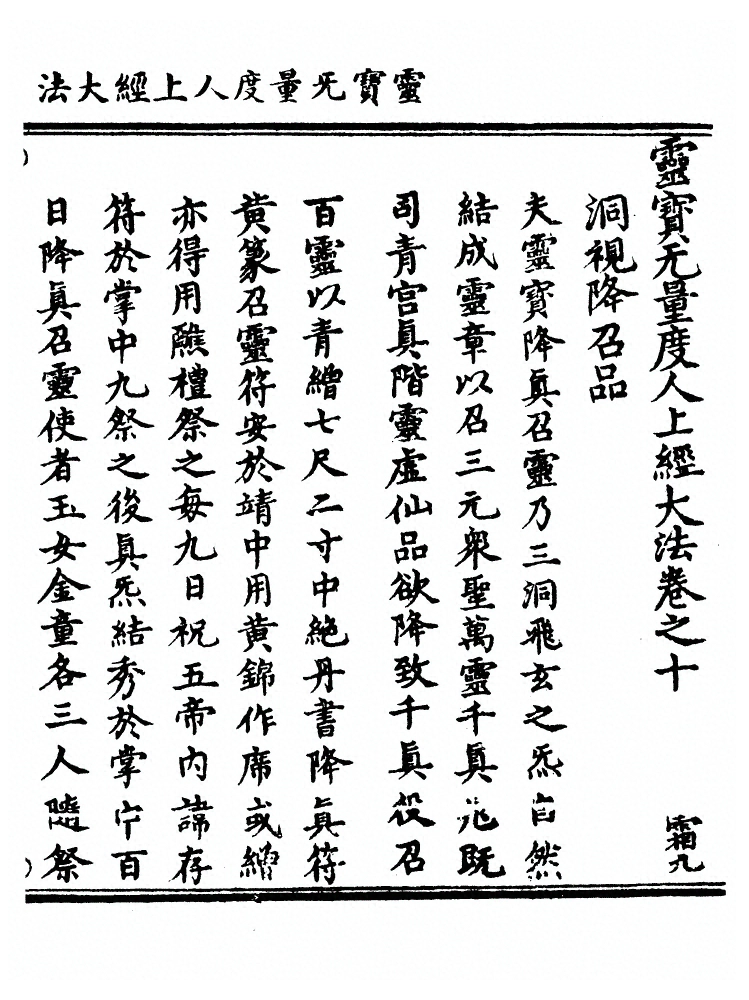 靈寶旡量度人上經大法
靈寶无量度人上經大法卷之十
霜九
洞視降召品
夫靈寶降眞召靈乃三洞飛玄之炁自然
結成靈章以召三元衆聖萬靈千眞旣
司青宫眞階靈虛仙品欲降致千眞役召
百靈以青繒七尺二寸中絶丹書降眞符
黄篆召靈符安於靖中用黄錦作席或繒
亦得用醮禮祭之每九日祝五帝内諱存
符於掌中九祭之後眞炁結秀於掌中百
日降眞召靈使者玉女金童各三人隨祭